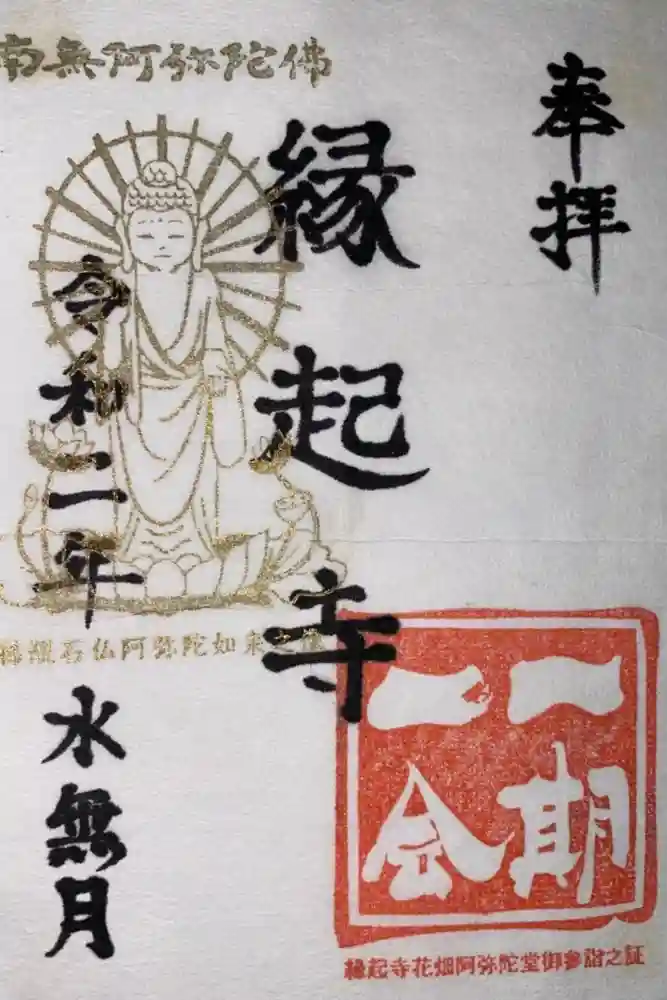 奉拝
縁起寺
令和二年
水無月
南無阿弥陀佛
石仏阿弥陀如来之
一期一会
縁起寺花畑阿弥陀堂御参詣之証